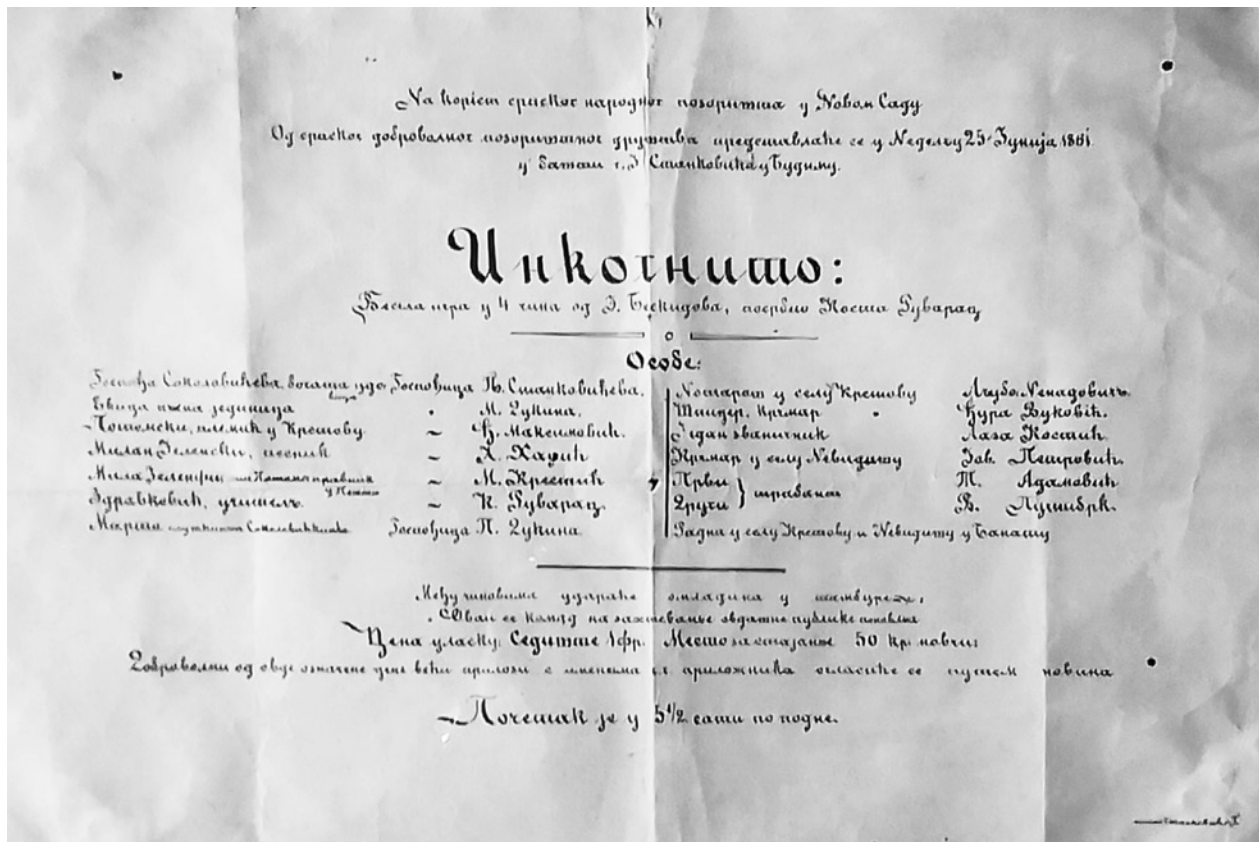 На корист српског народног позоришта у Новом Саду
Од српског добровалног позоришног друштва представлаће се у Недельу 25 Јунија 1861.
у башти г. Ј Станковића у Будиму.
Инкогнито:
Весела игра у 4 чина од Э. Бескидова, посрбио Коста Руварац
Особе:
Госпођа Соколовићева, богата удовица Госпођица Љ. Станковићева.
Евица нѣна јединица " М. Дукина.
Потомски, племић у Крешову ~ Ђ. Максимовић.
Милан Зеленски, песник ~ Х. Хаџић
Мила у Пешти ~ М. Крестић
Здравковић, учитель ~ К. Руварац
Марта Госпођица П. Дукина
Нотарош у селу Крешову Льубо. Ненадовићъ.
Крчмар " Ђура Вуковић.
Један званичник Лаза Костић
Крчмар у селу Невидишу Јов. Петровић.
Први Т. Адамовић
Други } трабант В. Пушибрк.
Радня у селу Крешову и Невидишу у Банату
Међу чиновима удараће омладина у тамбуре,
Овай се комад на захтеванье овдашнѣ публике понавля
Цена уласку: Седиште 1 фр. Место за стајанѣ 50 кр. новч:
Добровални од овде означене цене већи прилози с именима г.г. приложника огласиће се путем новина
Почетак је у 5 1/2 сати по подне.